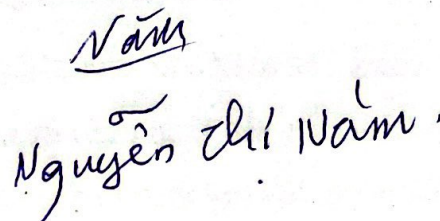 Năm
Nguyễn Thị Năm.